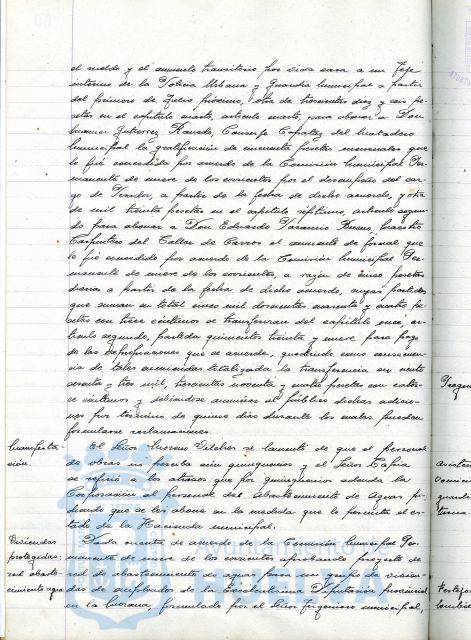 el sueldo y el aumento transitorio por vida cara a un Jefe
interino de la Policia Urbana y Guardia Municipal a partir
del primero de Julio próximo, otra de trescientas diez y seis pe-
setas en el capitulo cuarto, articulo cuarto, para abonar a Don
Manuel Gutierrez Conserje Capataz del Matadero
Municipal la gratificación de cincuenta pesetas mensuales que
le fué concedida por acuerdo de la Comisión Municipal Per-
manente de nueve de los corrientes por el desempeño del car-
go de Veedor, a partir de la fecha de dicho acuerdo, y otra
de mil treinta pesetas en el capitulo séptimo, articulo segun-
do para abonar a Don Eduardo Bueno, Maestro
Carpintero del Taller de Carros el aumento de jornal que
le fué concedido por acuerdo de la Comisión Municipal Per-
manente de nueve de los corrientes, a razón de cinco pesetas
diarias a partir de la fecha de dicho acuerdo, cuyas partidas
que suman en total cinco mil doscientas cuarenta y cuatro pe-
setas con trece céntimos se transferiran del capitulo once, ar-
ticulo segundo, partida quinientos treinta y nueve para pago
de las expropiaciones que se acuerde, quedando como consecuen-
cia de tales enmiendas totalizada la transferencia en ciento
sesenta y tres mil, trescientas noventa y cuatro pesetas con cator-
ce céntimos y debiendose anunciar al público dichas adicio-
nes por término de quince dias durante los cuales pueden
formularse reclamaciones.
Manifesta-
ción.
El Señor Moreno se lamentó de que el personal
de obras no perciba aún quinquenios y el Señor Tapia
se refirió a los atrasos que por quinquenios adeuda la
Corporación al personal del Abastecimiento de Aguas pi-
diendo que se les abone en la medida que lo permita el es-
tado de la Hacienda municipal.
Viviendas
protegidas:
red abaste-
cimiento agua
Dada cuenta de acuerdo de la Comisión Municipal Per-
manente de nueve de los corrientes aprobando proyecto de
red de abastecimiento de aguas para un grupo de vivien-
das de empleados de la Excelentisima Diputación provincial
en la formulado por el Señor Ingeniero municipal,